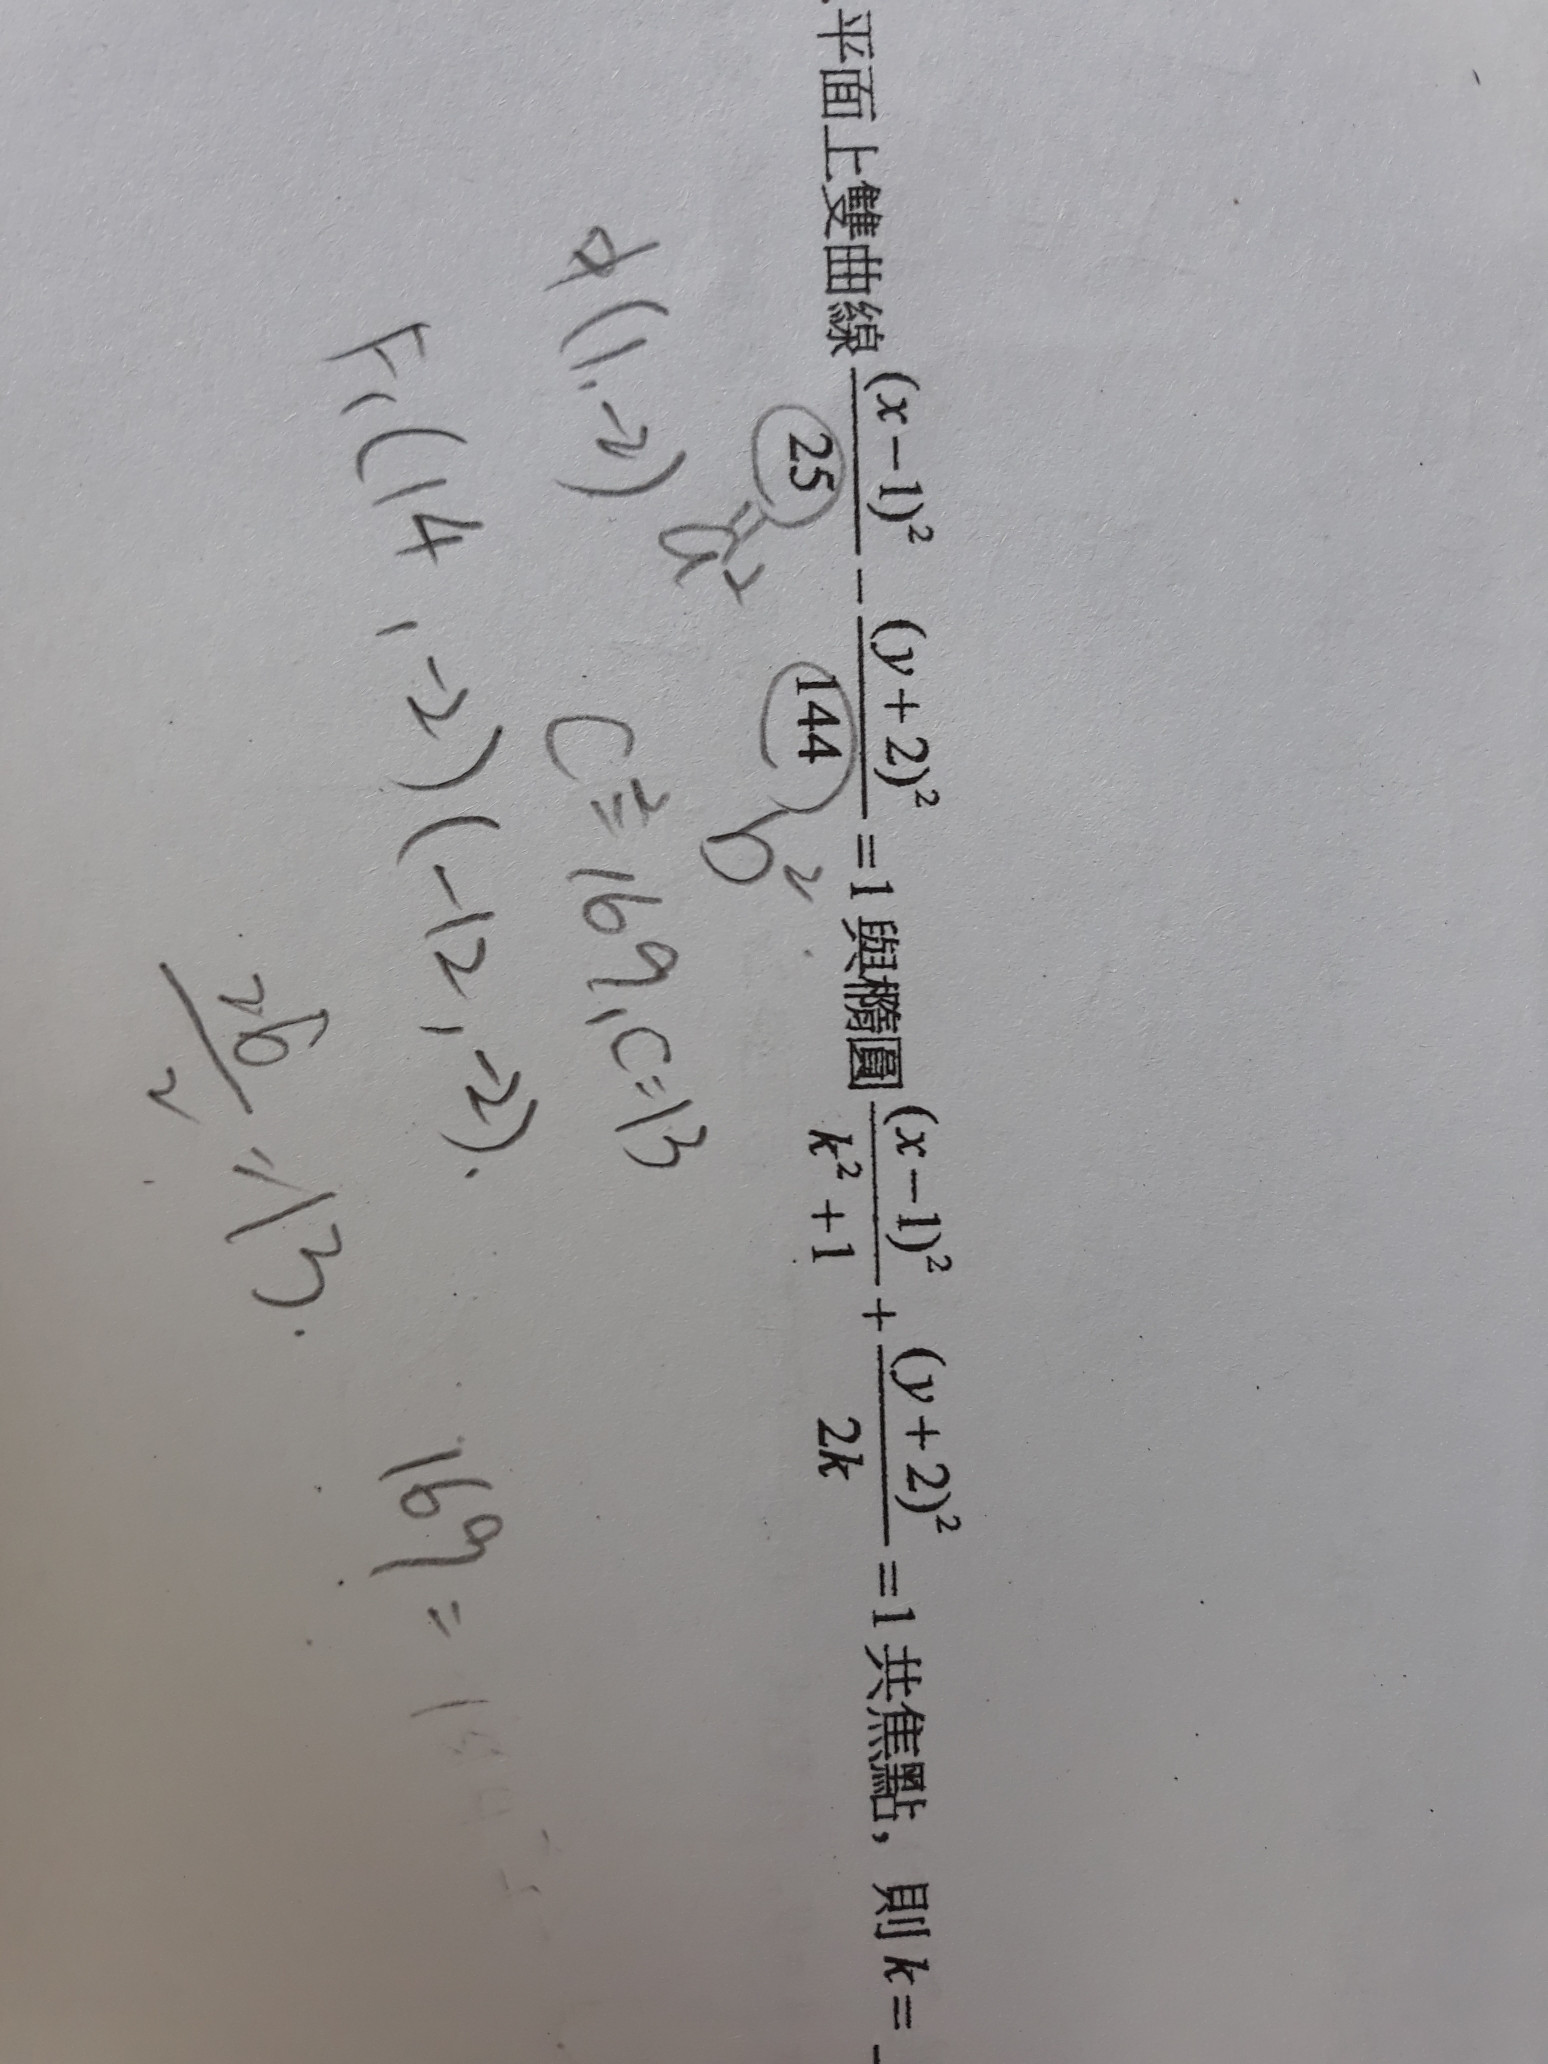 平面上雙曲線 (x-1)²/25 - (y+2)²/144 = 1 與橢圓 (x-1)²/k²+1 + (y+2)²/2k = 1 共焦點, 則 k =
a² b²
中(1,-2) c²=169, c=13
F₁(14,-2)(-12,-2).
26/2 = 13.
169 =